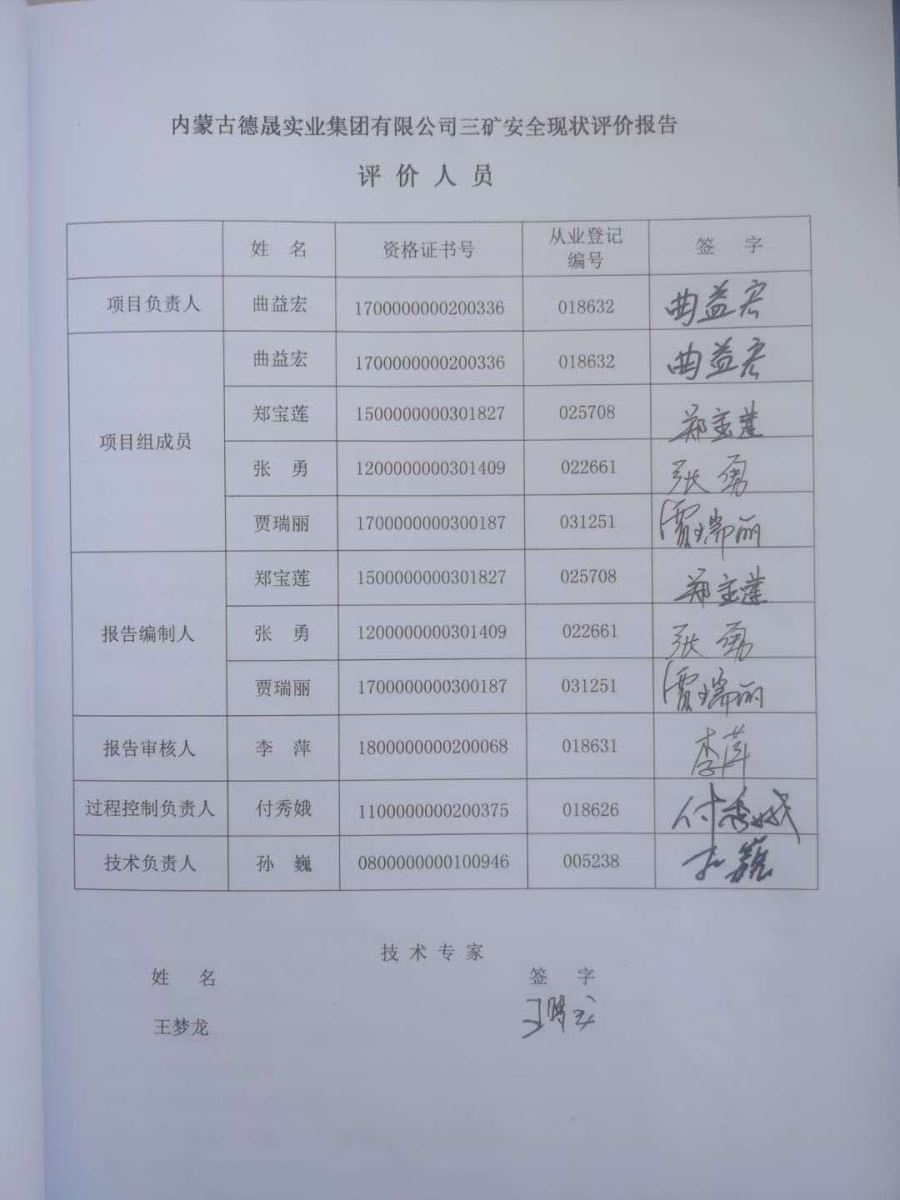 内蒙古德晟实业集团有限公司三矿安全现状评价报告
评价人员
姓 名 资格证书号 从业登记编号 签 字
项目负责人 曲益宏 1700000000200336 018632 曲益宏
项目组成员 曲益宏 1700000000200336 018632 曲益宏
郑宝莲 1500000000301827 025708 郑宝莲
张 勇 1200000000301409 022661 张勇
贾瑞丽 1700000000300187 031251 贾瑞丽
报告编制人 郑宝莲 1500000000301827 025708 郑宝莲
张 勇 1200000000301409 022661 张勇
贾瑞丽 1700000000300187 031251 贾瑞丽
报告审核人 李 萍 1800000000200068 018631 李萍
过程控制负责人 付秀娥 1100000000200375 018626 付秀娥
技术负责人 孙 巍 0800000000100946 005238 孙巍
技术专家
姓 名 签 字
王梦龙 王梦龙